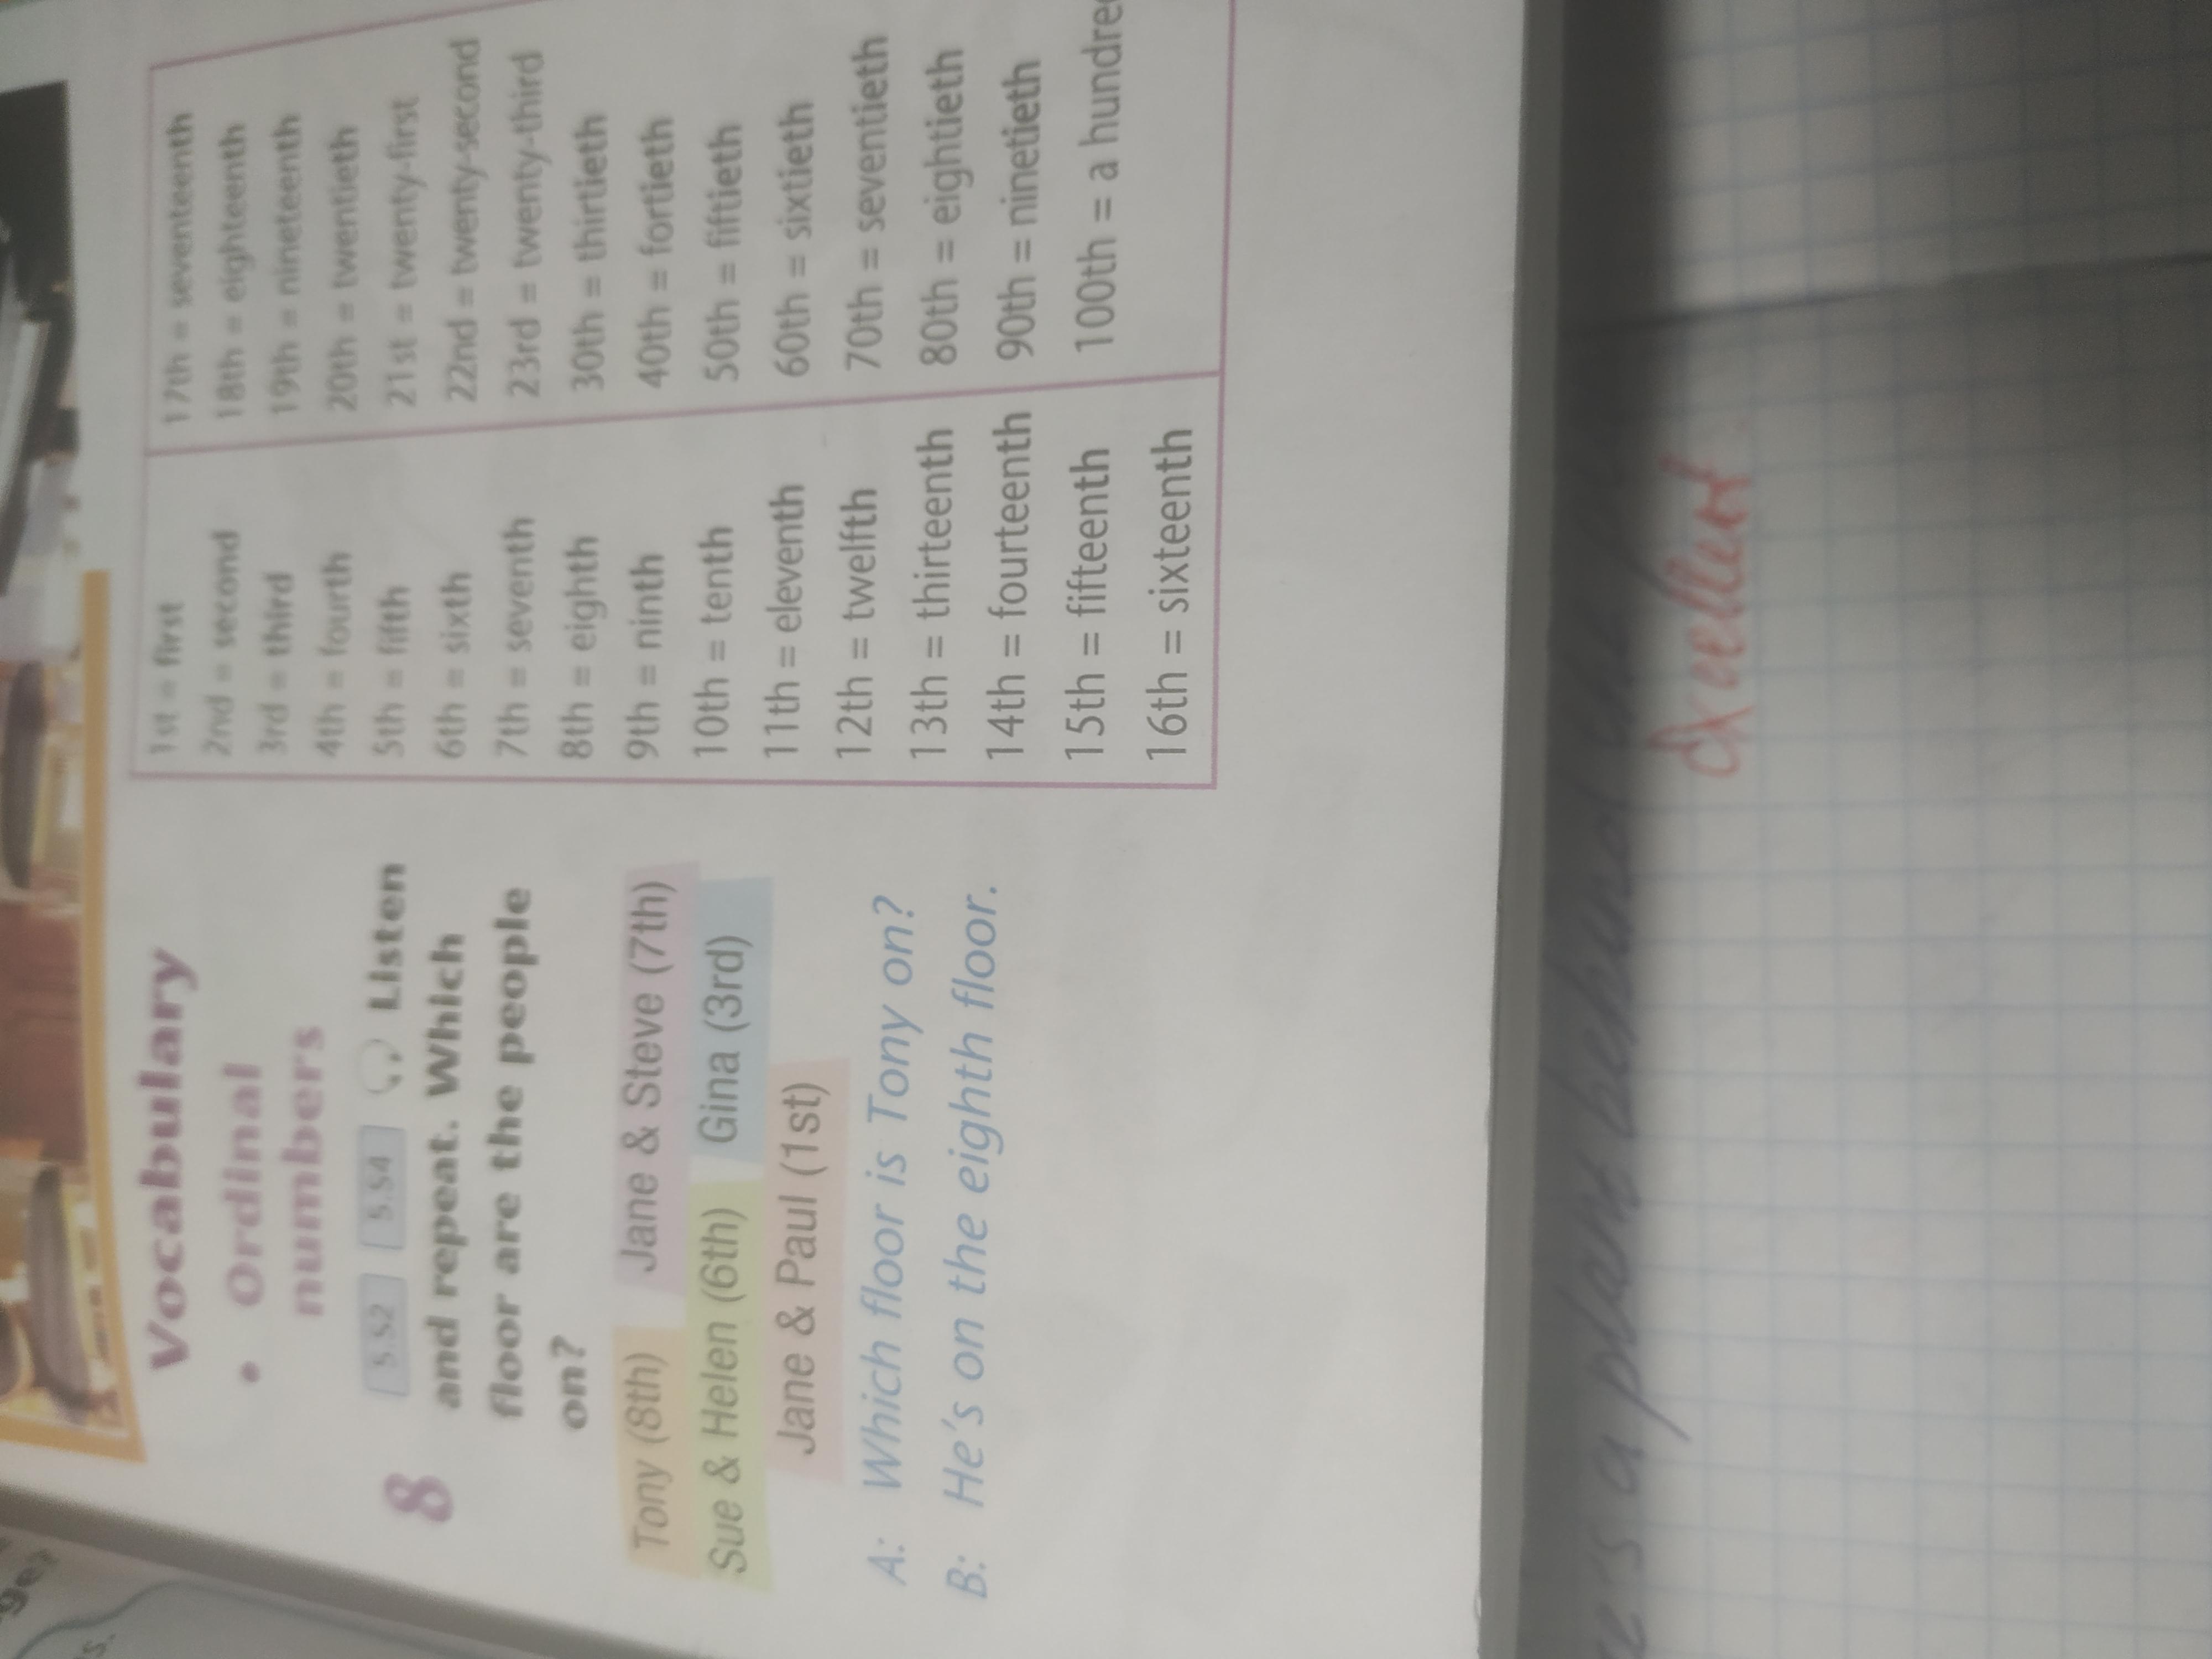 Vocabulary
• Ordinal
numbers
8 5.S2 5.S4 Listen
and repeat. Which
floor are the people
on?
Tony (8th) Jane & Steve (7th)
Sue & Helen (6th) Gina (3rd)
Jane & Paul (1st)
A: Which floor is Tony on?
B: He's on the eighth floor.
1st = first
2nd = second
3rd = third
4th = fourth
5th = fifth
6th = sixth
7th = seventh
8th = eighth
9th = ninth
10th = tenth
11th = eleventh
12th = twelfth
13th = thirteenth
14th = fourteenth
15th = fifteenth
16th = sixteenth
17th = seventeenth
18th = eighteenth
19th = nineteenth
20th = twentieth
21st = twenty-first
22nd = twenty-second
23rd = twenty-third
30th = thirtieth
40th = fortieth
50th = fiftieth
60th = sixtieth
70th = seventieth
80th = eightieth
90th = ninetieth
100th = a hundred
a plant behind
Excellent